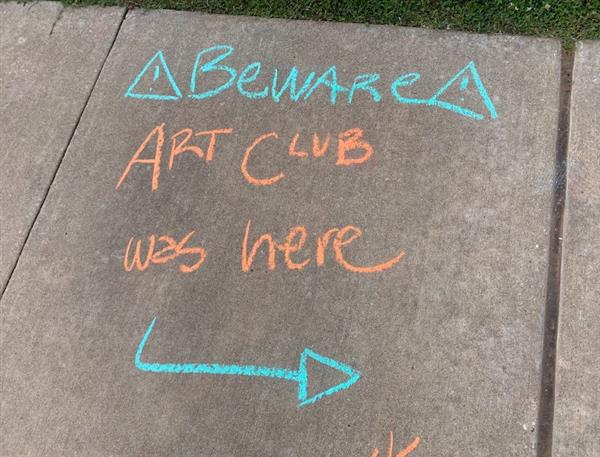 ⚠ Beware ⚠
ART CLUB
was here